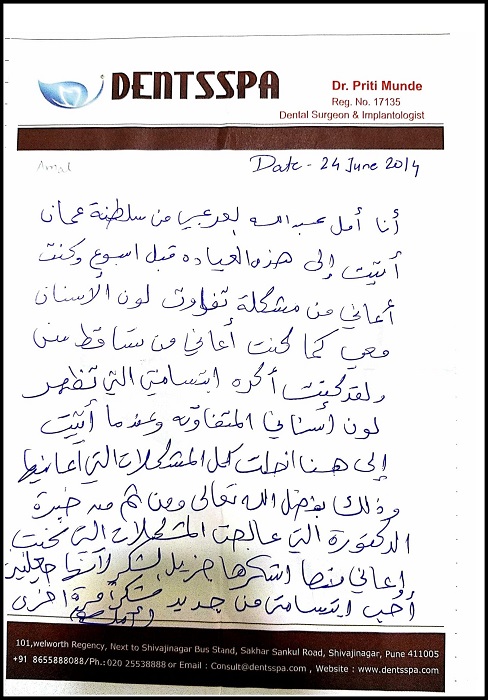 DENTSSPA
Dr. Priti Munde
Reg. No. 17135
Dental Surgeon & Implantologist
Amal
Date - 24 June 2014
أنا أمل عبدالله من سلطنة عمان
أتيت إلى هذه العياده قبل اسبوع وكنت
أعاني من مشكلة تفاوت لون الأسنان
معي كما كنت أعاني من تساقط سني
ولقد كنت أكره ابتسامتي التي تظهر
لون أسناني المتفاوته وعندما أتيت
إلى هنا انحلت كل المشكلات التي أعانيها
وذلك بفضل الله تعالى ومن ثم من خبرة
الدكتورة التي عالجت المشكلات التي كنت
إعاني منها اشكرها جزيل الشكر لأنها جعلتني
أحب ابتسامتي من جديد شكرا مرة اخرى
101,welworth Regency, Next to Shivajinagar Bus Stand, Sakhar Sankul Road, Shivajinagar, Pune 411005
+91 8655888088/Ph.: 020 25538888 or Email : Consult@dentsspa.com , Website : www.dentsspa.com